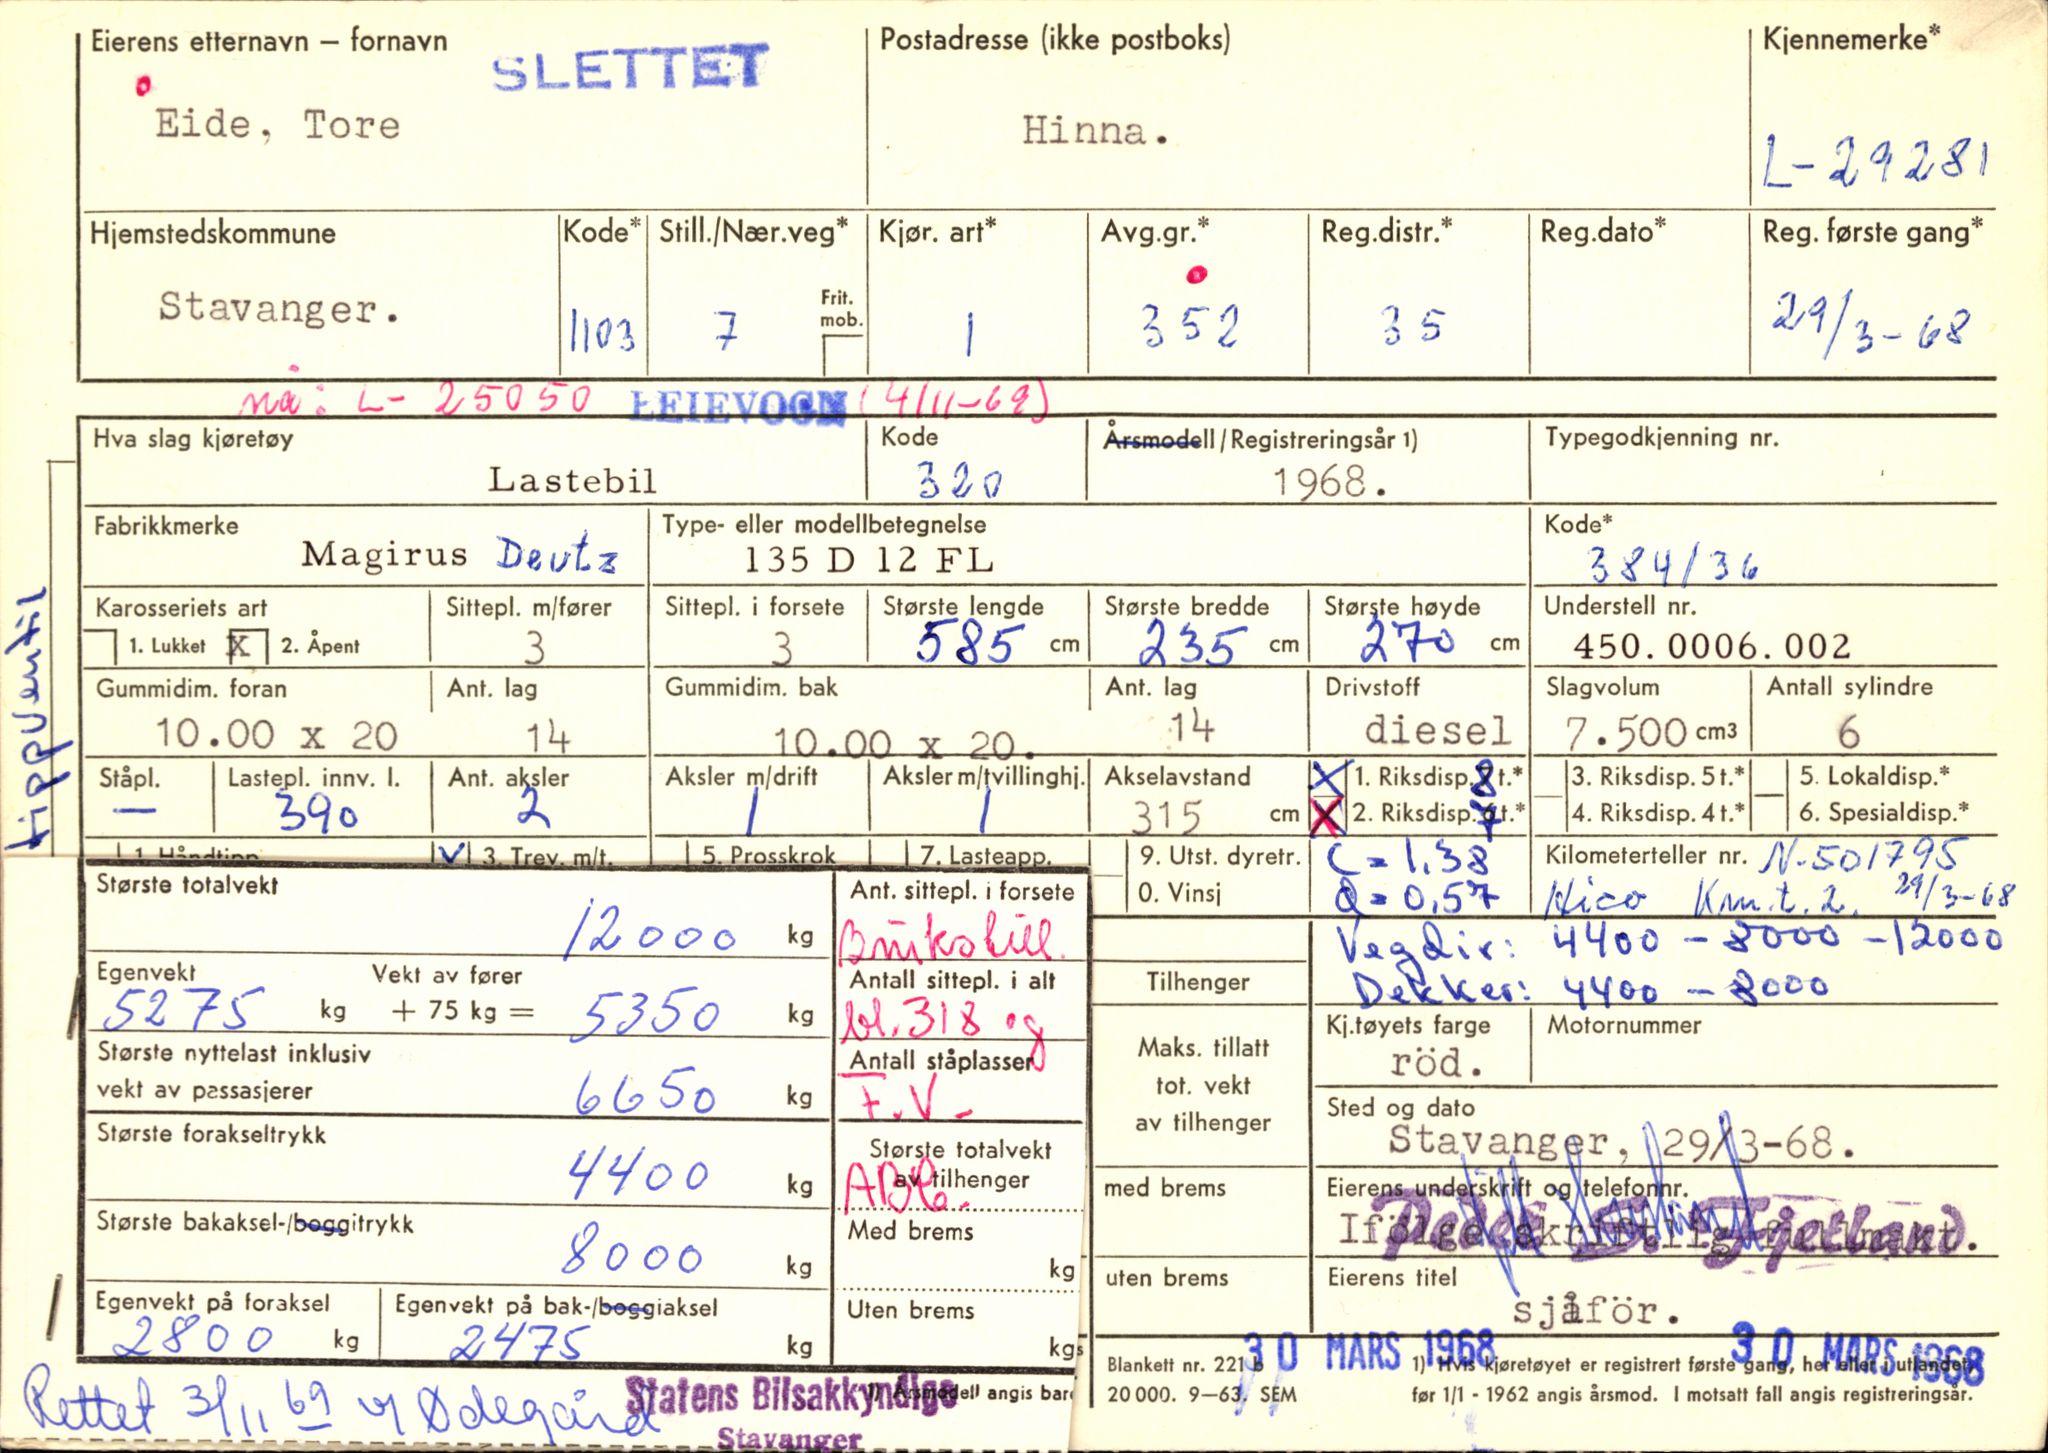 Eierens etternavn – fornavn
SLETTET
Postadresse (ikke postboks)
Kjennemerke*
Eide, Tore
Hinna.
L-29281
Hjemstedskommune
Kode*
Still./Nær.veg*
Kjør. art*
Avg.gr.*
Reg.distr.*
Reg.dato*
Reg. første gang*
Stavanger.
1103
7
Frit. mob.
1
352
35
29/3-68
nå: L- 25050 LEIEVOGN (4/11-69)
Hva slag kjøretøy
Kode
Årsmodell/Registreringsår 1)
Typegodkjenning nr.
Lastebil
320
1968.
Fabrikkmerke
Type- eller modellbetegnelse
Kode*
Magirus Deutz
135 D 12 FL
384/36
Karosseriets art
Sittepl. m/fører
Sittepl. i forsete
Største lengde
Største bredde
Største høyde
Understell nr.
1. Lukket X 2. Åpent
3
3
585 cm
235 cm
270 cm
450.0006.002
Gummidim. foran
Ant. lag
Gummidim. bak
Ant. lag
Drivstoff
Slagvolum
Antall sylindre
10.00 x 20
14
10.00 x 20.
14
diesel
7.500 cm3
6
Ståpl.
Lastepl. innv. l.
Ant. aksler
Aksler m/drift
Aksler m/tvillinghj.
Akselavstand
X 1. Riksdisp. 8 t.*
3. Riksdisp. 5 t.*
5. Lokaldisp.*
—
390
2
1
1
315 cm
X 2. Riksdisp. 7 t.*
4. Riksdisp. 4 t.*
6. Spesialdisp.*
tippventil
1. Håndtipp
V 3. Trev. m/t.
5. Prosskrok
7. Lasteapp.
9. Utst. dyretr.
C = 1,38
Kilometerteller nr. N-501795
0. Vinsj
Q = 0,57
Kico Km.t. 2. 29/3-68
Største totalvekt
12000 kg
Ant. sittepl. i forsete
Brukstill.
VegDir: 4400 – 8000 – 12000
Egenvekt
Vekt av fører
Antall sittepl. i alt
Tilhenger
Dekker: 4400 – 8000
5275 kg + 75 kg = 5350 kg
bl. 318 og
Kj.tøyets farge
Motornummer
Største nyttelast inklusiv
Antall ståplasser
Maks. tillatt
röd.
vekt av passasjerer
6650 kg
F.V.
tot. vekt
av tilhenger
Sted og dato
Største forakseltrykk
Stavanger, 29/3-68.
4400 kg
Største totalvekt
av tilhenger
med brems
Eierens underskrift og telefonnr.
Største bakaksel-/boggitrykk
Med brems
Ifölge skriftlig fullmakt.
Fjetland
8000 kg
kg
uten brems
Eierens titel
Egenvekt på foraksel
Egenvekt på bak-/boggiaksel
Uten brems
sjåför.
2800 kg
2475 kg
kg
30 MARS 1968
30 MARS 1968
Blankett nr. 221 b
1) Hvis kjøretøyet er registrert første gang, her eller i utlandet,
Rettet 3/11 69 v/ Ødegård
Statens Bilsakkyndige
1) Årsmodell angis bare
20 000. 9–63. SEM
før 1/1 - 1962 angis årsmod. I motsatt fall angis registreringsår.
Stavanger